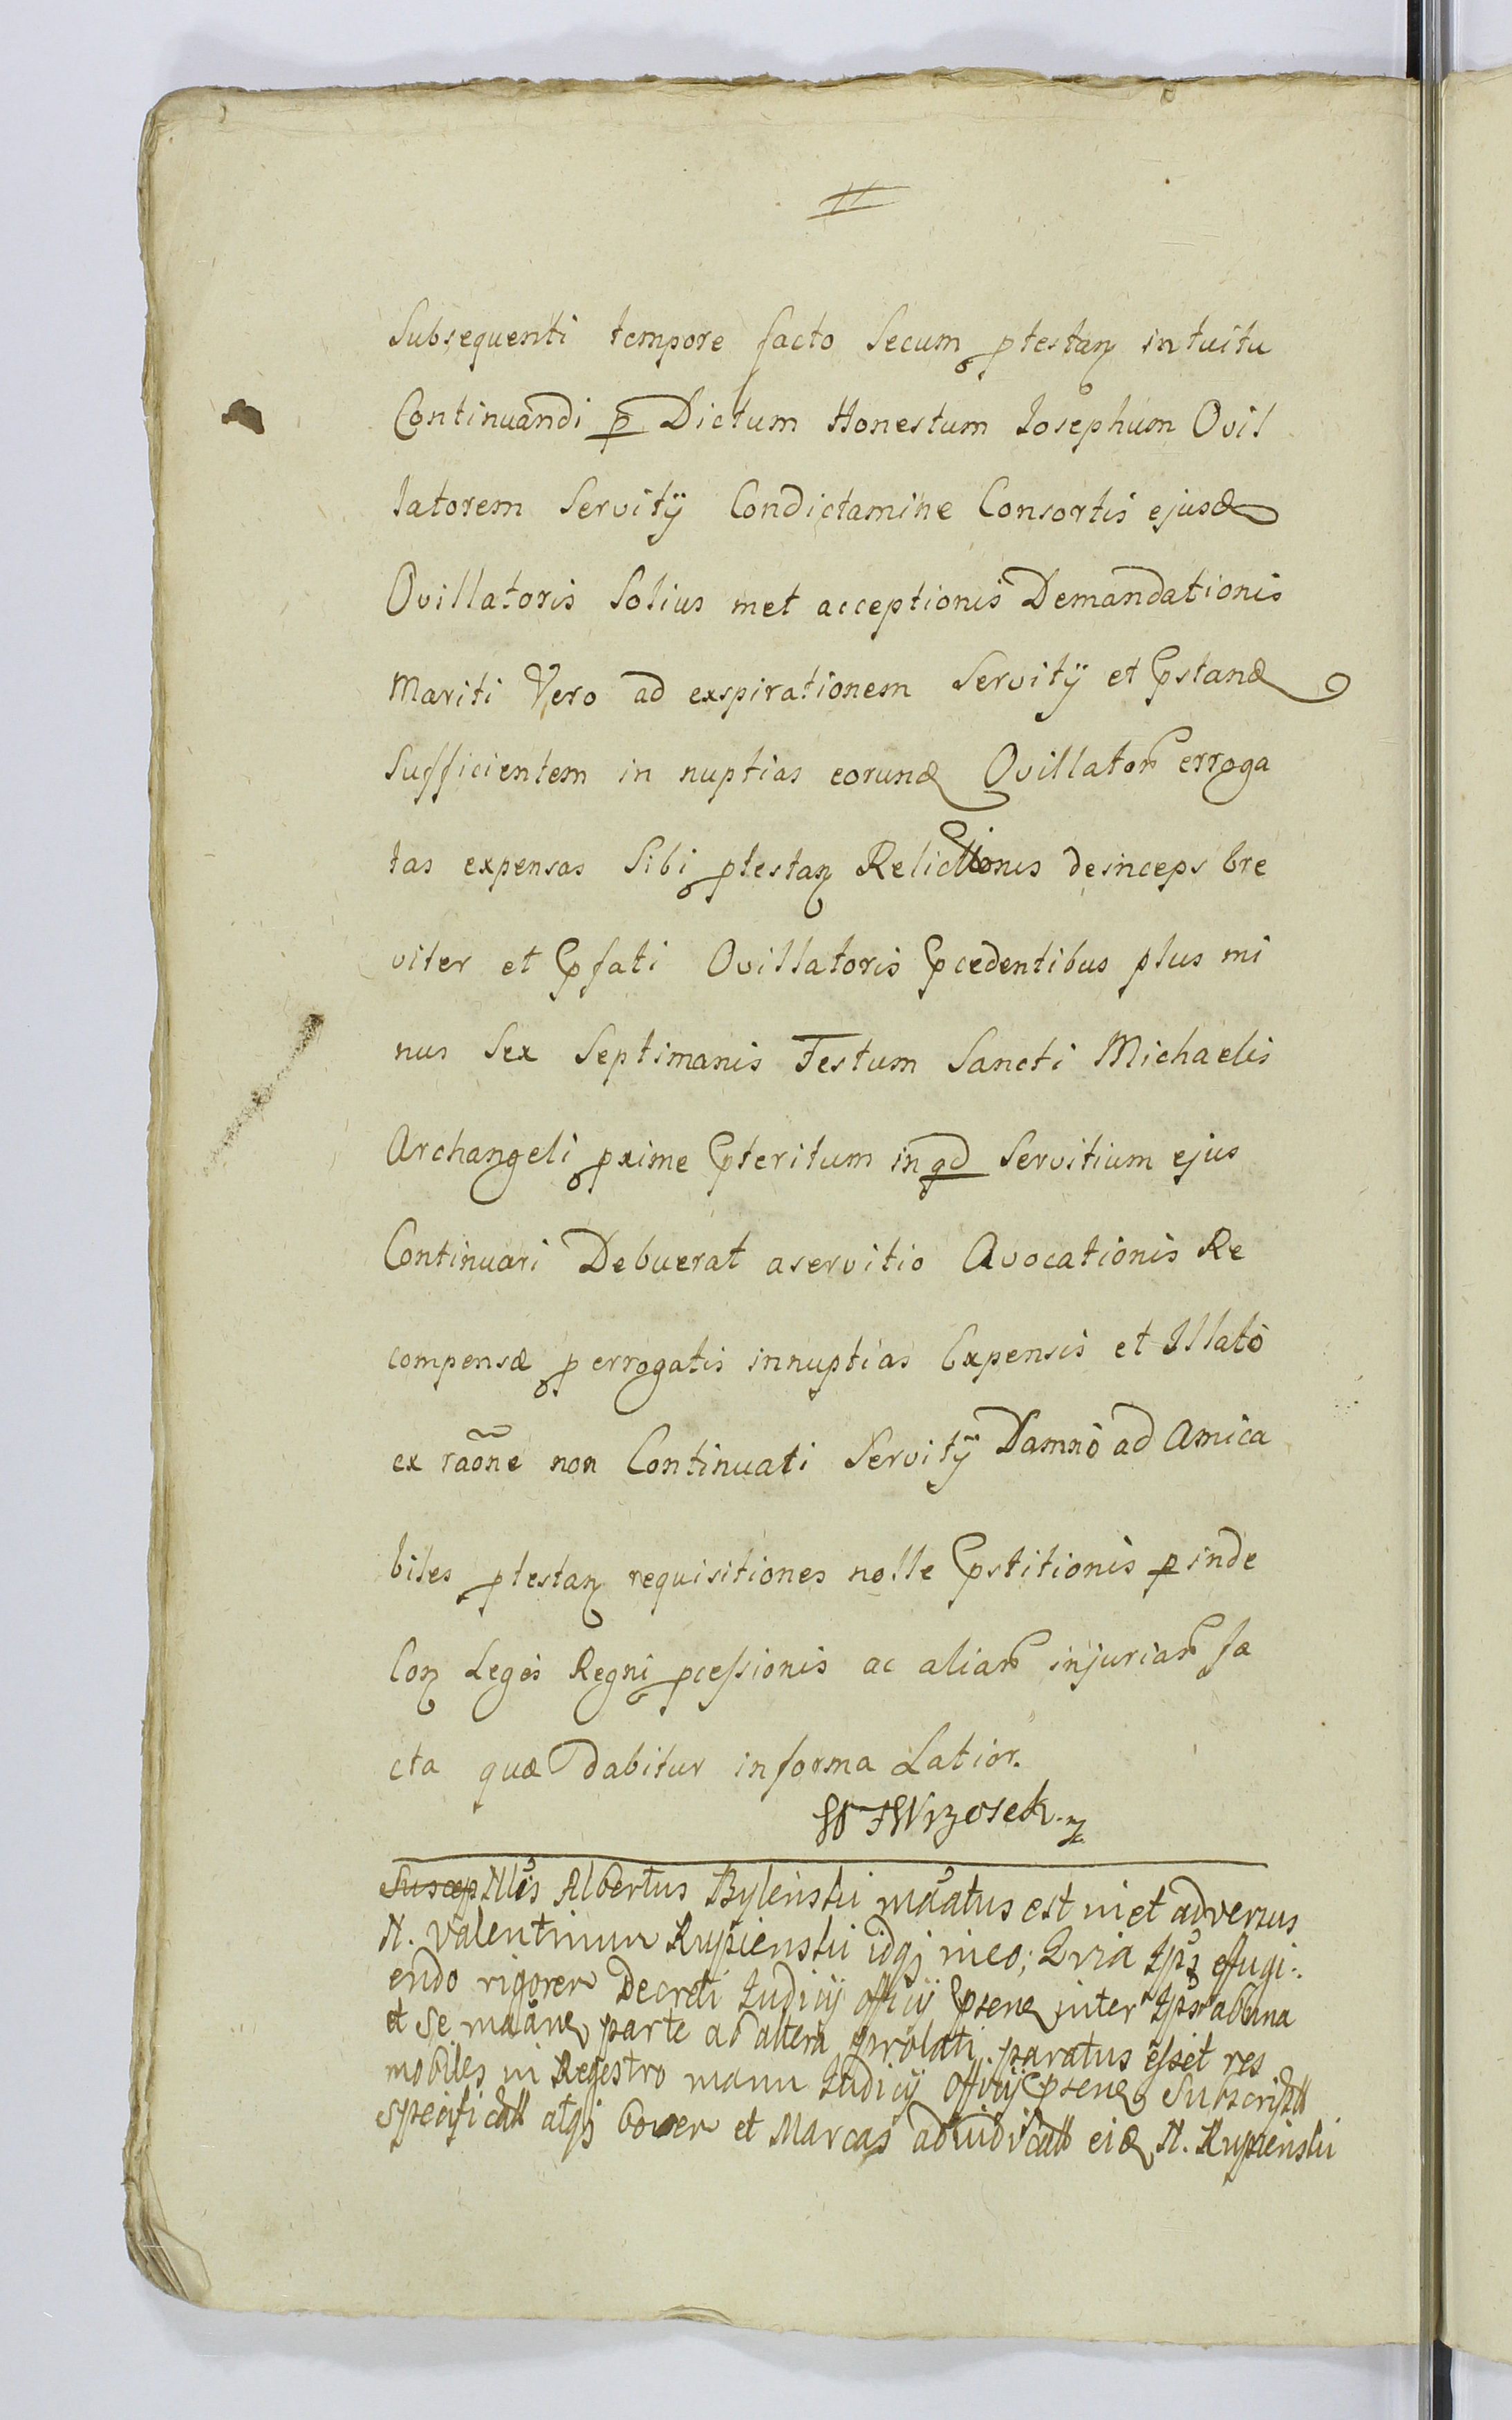 11
Subsequenti tempore facto Secum ptestan intuitu
Continuandi p Dictum Honestum Josephum Ovil
latorem Servitÿ Condictamine Consortis ejusd
Ovillatoris Solius met acceptionis Demandationis
Mariti Vero ad expirationem Servitÿ et pstand
Sufficientem in nuptias eorund Ovillator erroga
tas expensas Sibi ptestan Relictionis deinceps bre
viter et pfati Ovillatoris pcedentibus plus mi
nus Sex Septimanis Festum Sancti Michaelis
Archangeli pxime pteritum in qd Servitium ejus
Continuari Debuerat aservitio Avocationis Re
compensæ p errogatis innuptias Expensis et Illato
ex raõne non Continuati Servitÿ Damno ad Amica
biles ptestan requisitiones nolle pstitionis pinde
Con Leges Regni pcessionis ac aliar injuriar fa
cta quæ dabitur informa Latior.
Wrzosek
Albertus Bylenski est adversus
N. Valentinum Rupienski idqj meo; Qvia Ips effugi:
endo rigorem Decreti Judicÿ officÿ psens inter
et Se parte ab altera prolati paratus esset res
mobiles in Regestro manu Judicÿ Officÿ psens Subscript
specificat atqj et Marcas adjudicat eid N. Rupienski